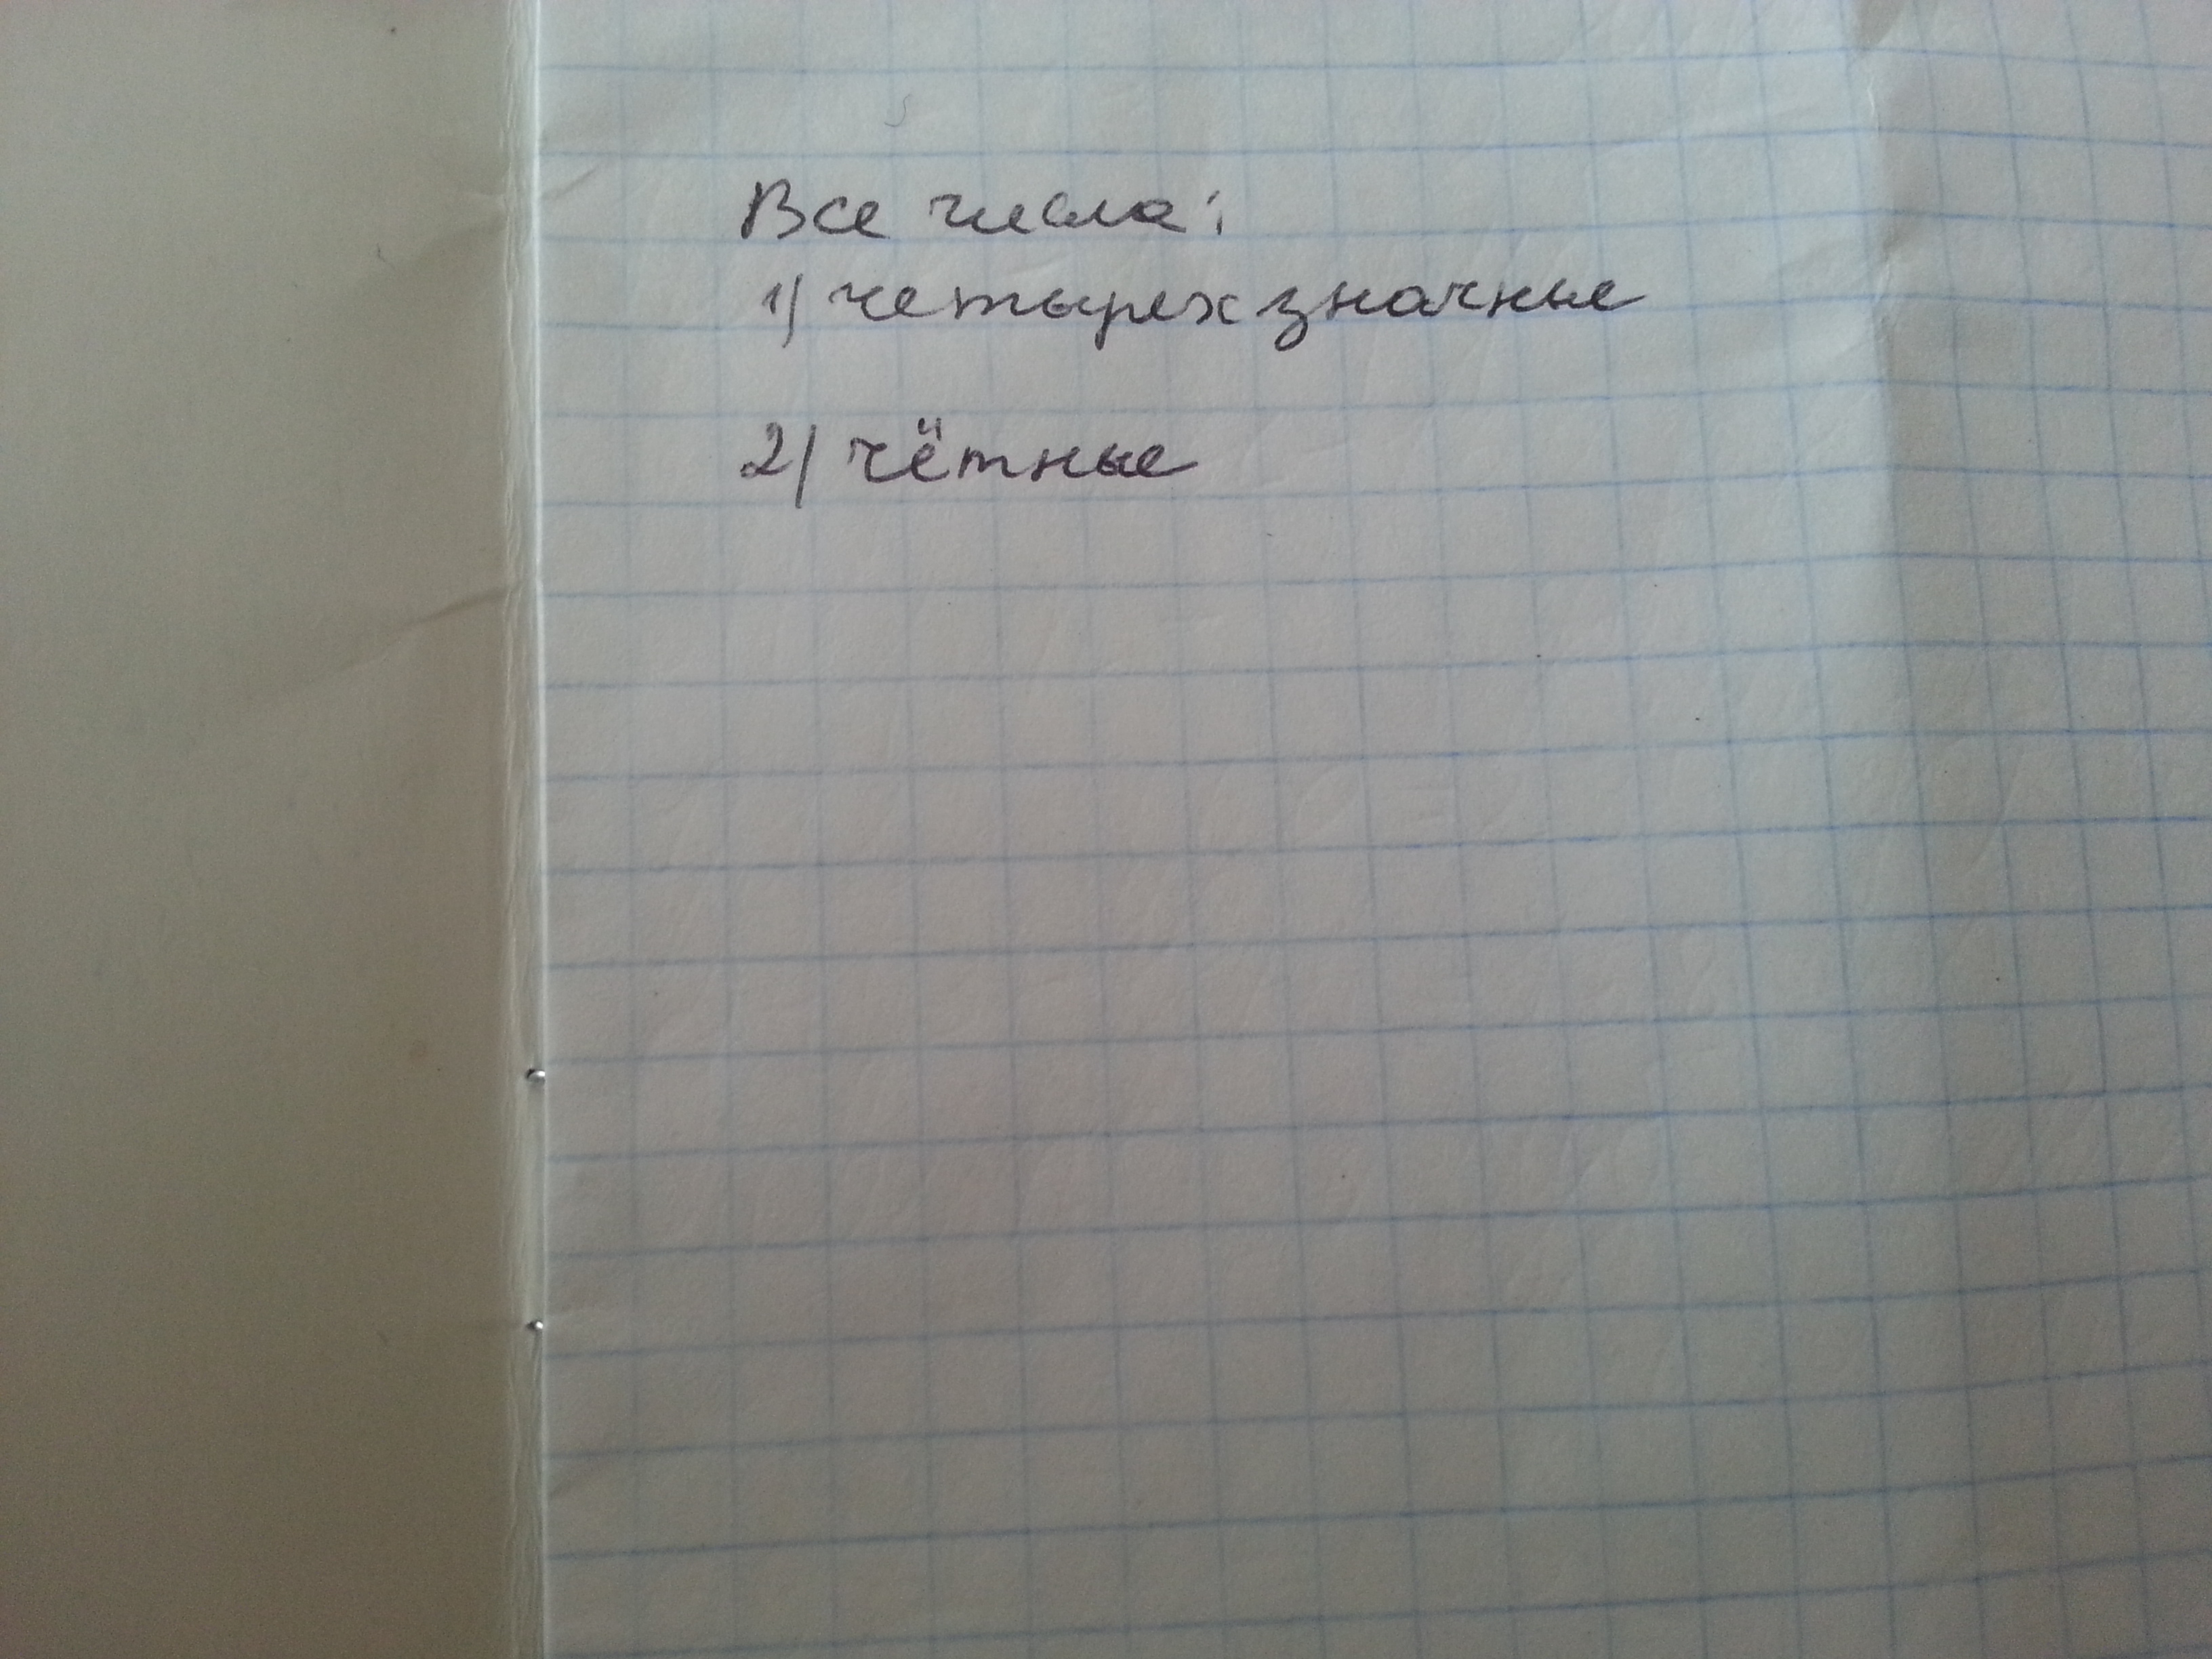 Все числа:
1) четырехзначные
2) чётные